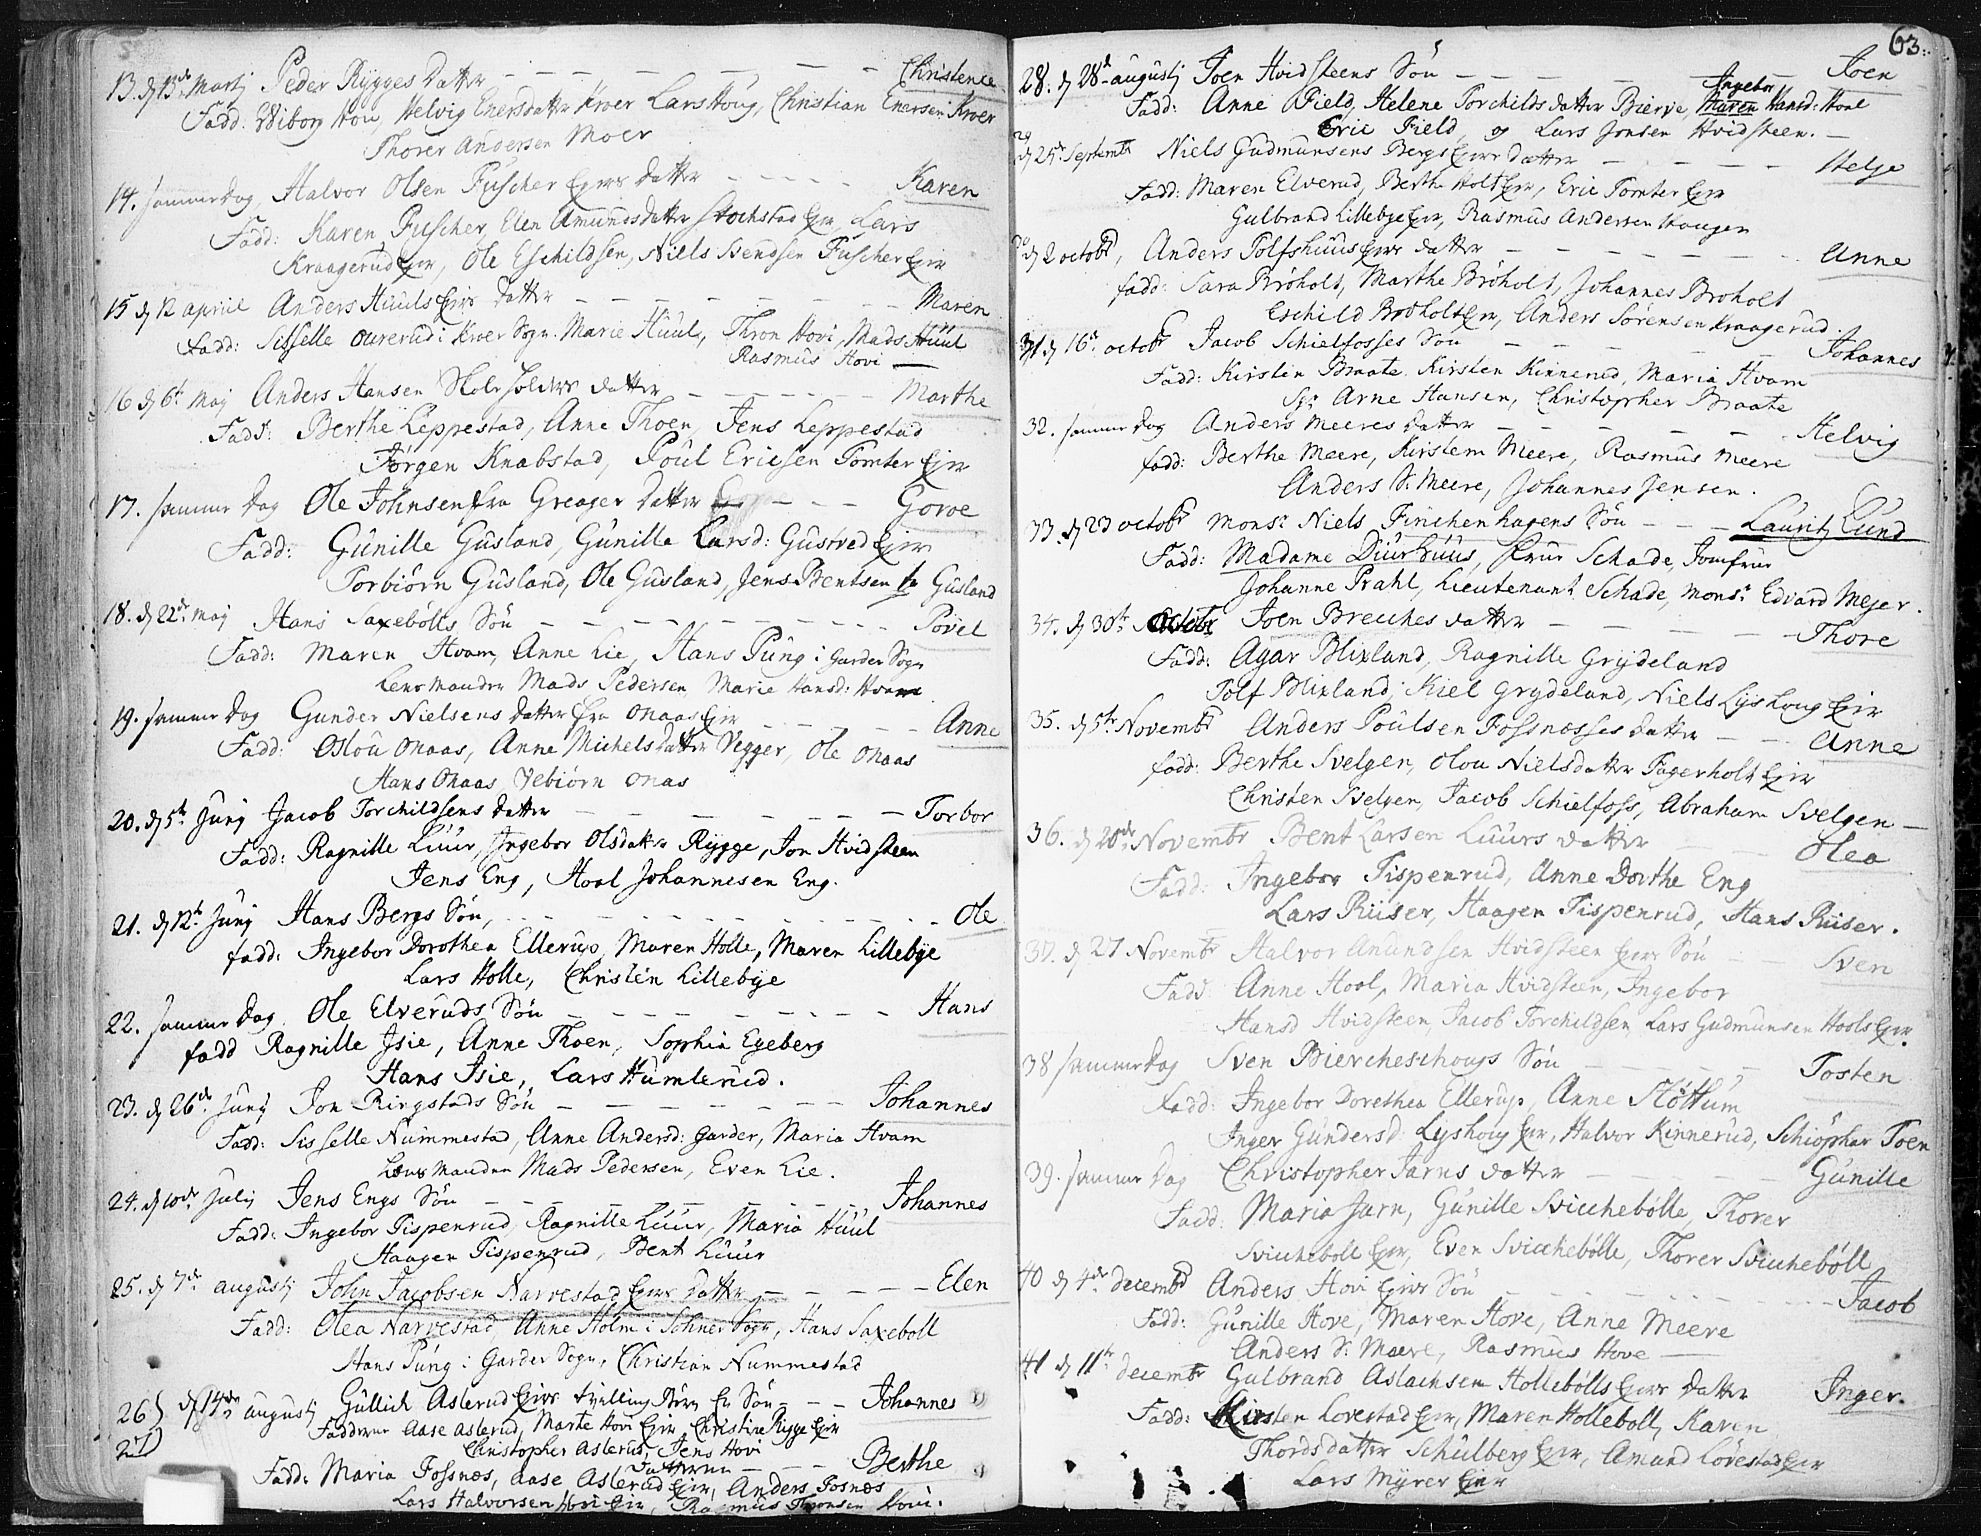 13. d 13de Martj Peder Rygges Datter — — — — — — Christence
Fadd: Wiborg Hou, Helvig Enersdatter Kroer Lars Houg, Christian Enersen Kroer
Thorer Andersen Moer
14. sammer Dag, Halvor Olsen Fuscher Eiers Datter — — — — Karen
Fadd: Karen Fuscher, Elen Amundsdatter Stochstad Eier, Lars
Kraagerud Eier, Ole Eschildsen, Niels Svendsen Fuscher Eier
15 d 12 april Anders Huuls Eiers Datter — — — — — — Maren
Fadd: Sisselle Ourerud i Kroer Sogn. Marie Huul, Thron Hovi, Mads Huul
Rasmus Hovi —
16 d 6t Maj Anders Hansen Skoleholders Datter — — — — — Marthe
Fadd: Berthe Leppestad, Anne Thoen, Jens Leppestad
Jørgen Knabstad, Poul Ericsen Tomter Eier
17. sammer Dag Ole Johnsen fra Greager Datter — — — Gorve
Fadd: Gunille Gusland, Gunille Larsd: Gusland Eier
Torbiørn Gusland, Ole Gusland, Jens Bentsen Gusland
18. d 22de Maj Hans Saxebølls Søn — — — — — — Povel
Fadd: Maren Hvam, Anne Lie, Hans Pung i Garder Sogn
Lensmanden Mads Pedersen Marie Hansd: Hvam
19. sammer Dag Gunder Nielsens Datter fra Onaas Eier — — — Anne
Fadd: Oslou Onaas, Anne Michelsdatter Vegger, Ole Onaas
Hans Onaas Vebiørn Onas
20. d 5te Junj Jacob Torchildsens Datter — — — — — Torbor
Fadd: Ragnille Luur, Ingebor Olsdatter Rygge, Jon Hvidsteen
Jens Eng, Hoal Johannesen Eng.
21. d 12te Junj Hans Bergs Søn, — — — — — — Ole
fadd: Ingebor Dorothea Ellerup, Maren Holle, Maren Lillebye
Lars Holle, Christen Lillebye
22. sammer Dag Ole Elveruds Søn — — — — — Hans
fadd Ragnille Isie, Anne Thoen, Sophia Egeberg
Hans Isie, Lars Humlerud.
23. d 26de Junj Jon Ringstads Søn — — — — — — Johannes
Fadd: Sisselle Nummestad, Anne Andersd: Garder, Maria Hvam
Lensmanden Mads Pedersen, Even Lie.
24. d 10de Julij Jens Engs Søn — — — — — — Johannes
Fadd: Ingebor Tispenrud, Ragnille Luur, Maria Huul
Haagen Tispenrud, Bent Luur
25. d 7de augustj John Jacobsen Narvestad Eiers Datter — — — — — Elen
Fadd: Olea Narvestad, Anne Holm i Sohner Sogn, Hans Saxeboll
Hans Pung i Garder Sogn, Christian Nummestad
26) d 14de augustj Gullich Asterud Eiers tvilling Børn En Søn — — Johannes
Fadderne Aase Asterud, Marte Hovi Eier, Christine Rygge Eier
27) Christopher Asterud, Jens Hovi
Datteren — — — Berthe
Fadd: Maria Fossnæs, Aase Asterud Eier, Anders Fosnæs
Lars Halvorsen Hovi Eier, Rasmus Thronsen Hovi.
63.
28. d 28de augustj Joen Hvidsteens Søn — — — — — Joen
Ingebor
Fadd: Anne Field, Helene Torchildsdatter Bierge, Maren Hansd: Hoal
Eric Field, og Lars Jonsen Hvidsteen. —
29 d 25de Septembr Niels Gudmunsens Bergs Eiers Datter — — — — — Helje
Fadd: Maren Elverud, Berthe Holt Eier, Eric Tomter Eier
Gulbrand Lillebye Eier, Rasmus Andersen Haugen
30 d 2 octobr, Anders Tolfshuus Eiers Datter — — — — — Anne
fadd: Sara Brøholt, Marthe Brøholt, Johannes Broholt
Eschild Broholt Eier, Anders Sørensen Kraagerud.
31 d 16de octobr Jacob Schielfosses Søn — — — — — Johannes
Fadd: Kirsten Braate, Kirsten Kinnerud, Maria Hvam
Sr Arne Hansen, Christopher Braate
32. sammer Dag Anders Meeres Datter — — — — — Helvig
fadd: Berthe Meere, Kirsten Meere, Rasmus Meere
Anders S: Meere, Johannes Jensen.
33. d 23 octobr Monsr Niels Finchenhagens Søn — — — Lauritz Lund
Fadd: Madame Duurhuus, Frue Schade, Jomfrue
Johanne Prahl, Lieutenant Schade, Monsr Edvard Mejer.
34. d 30te octobr Joen Brecches Datter — — — — — Thore
Fadd: Agar Blixland, Ragnille Grydeland
Tolf Blixland, Kiel Grydeland, Niels Lyshoug Eier
35. d 5te Novembr Anders Poulsen Fossnæsses Datter — — Anne
fadd: Berthe Svelgen, Olou Nielsdatter Fagerholt Eier
Christen Svelgen, Jacob Schielfoss, Abraham Svelgen —
36. d 20de Novembr Bent Larsen Luurs Datter — — Olea
Fadd: Ingebor Tispenrud, Anne Dorthe Eng
Lars Riiser, Haagen Tispenrud, Hans Riiser.
37. d 27 Novembr Halvor Anundsen Hvidsteen Eiers Søn — — Sven
Fadd: Anne Hoal, Maria Hvidsteen, Ingebor
Hansd Hvidsteen, Jacob Torchildsen, Lars Gudmunsen Hoels Eier.
38 sammer Dag Sven Biercheschougs Søn — — — — — Tosten
Fadd: Ingebor Dorethea Ellerup, Anne Støttum
Inger Gundersd: Lyshoug Eier, Halvor Kinnerud, Schiøphar Toen
39. sammer Dag Christopher Jarns Datter — — — — — Gunille
Fadd: Maria Jarn, Gunille Svicchebølle, Thorer
Svicchebøll Eier, Even Svicchebølle, Thorer Svicchebøll
40 d 4de decembr Anders Hovi Eiers Søn — — — — — Jacob
Fadd: Gunille Hove, Maren Hove, Anne Meere
Anders S: Meere, Rasmus Hove —
41 d 11te decembr Gulbrand Aslachsen Hollebølls Eiers Datter Inger.
Fadd: Kirsten Lovestad Eier, Maren Hollebøll, Karen
Thordsdatter Schulberg Eier, Amund Lovestad Eier
Lars Myrer Eier